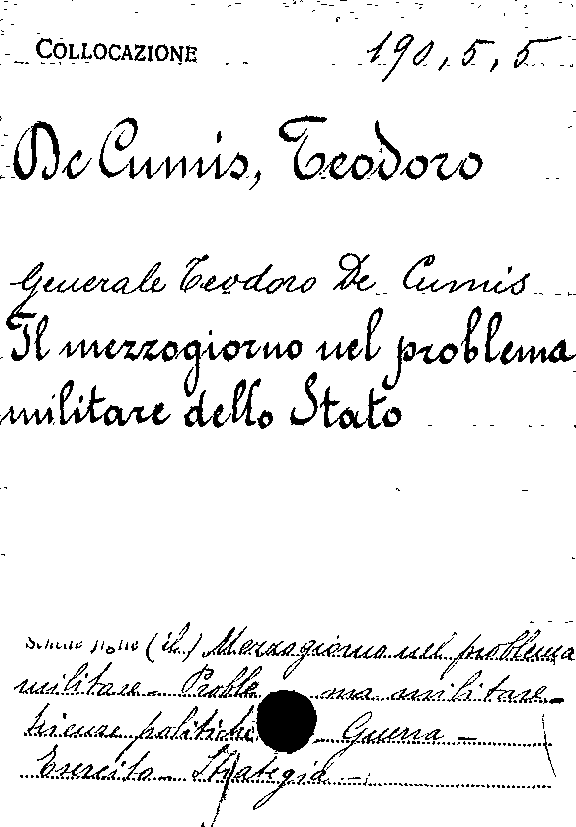 COLLOCAZIONE 190, 5, 5
De Cumis, Teodoro
Generale Teodoro De Cumis
Il mezzogiorno nel problema
militare dello Stato
Schede fatte (il) Mezzogiorno nel problema
militare - Proble ma militare -
Scienze politiche - Guerra -
Esercito - Strategia -